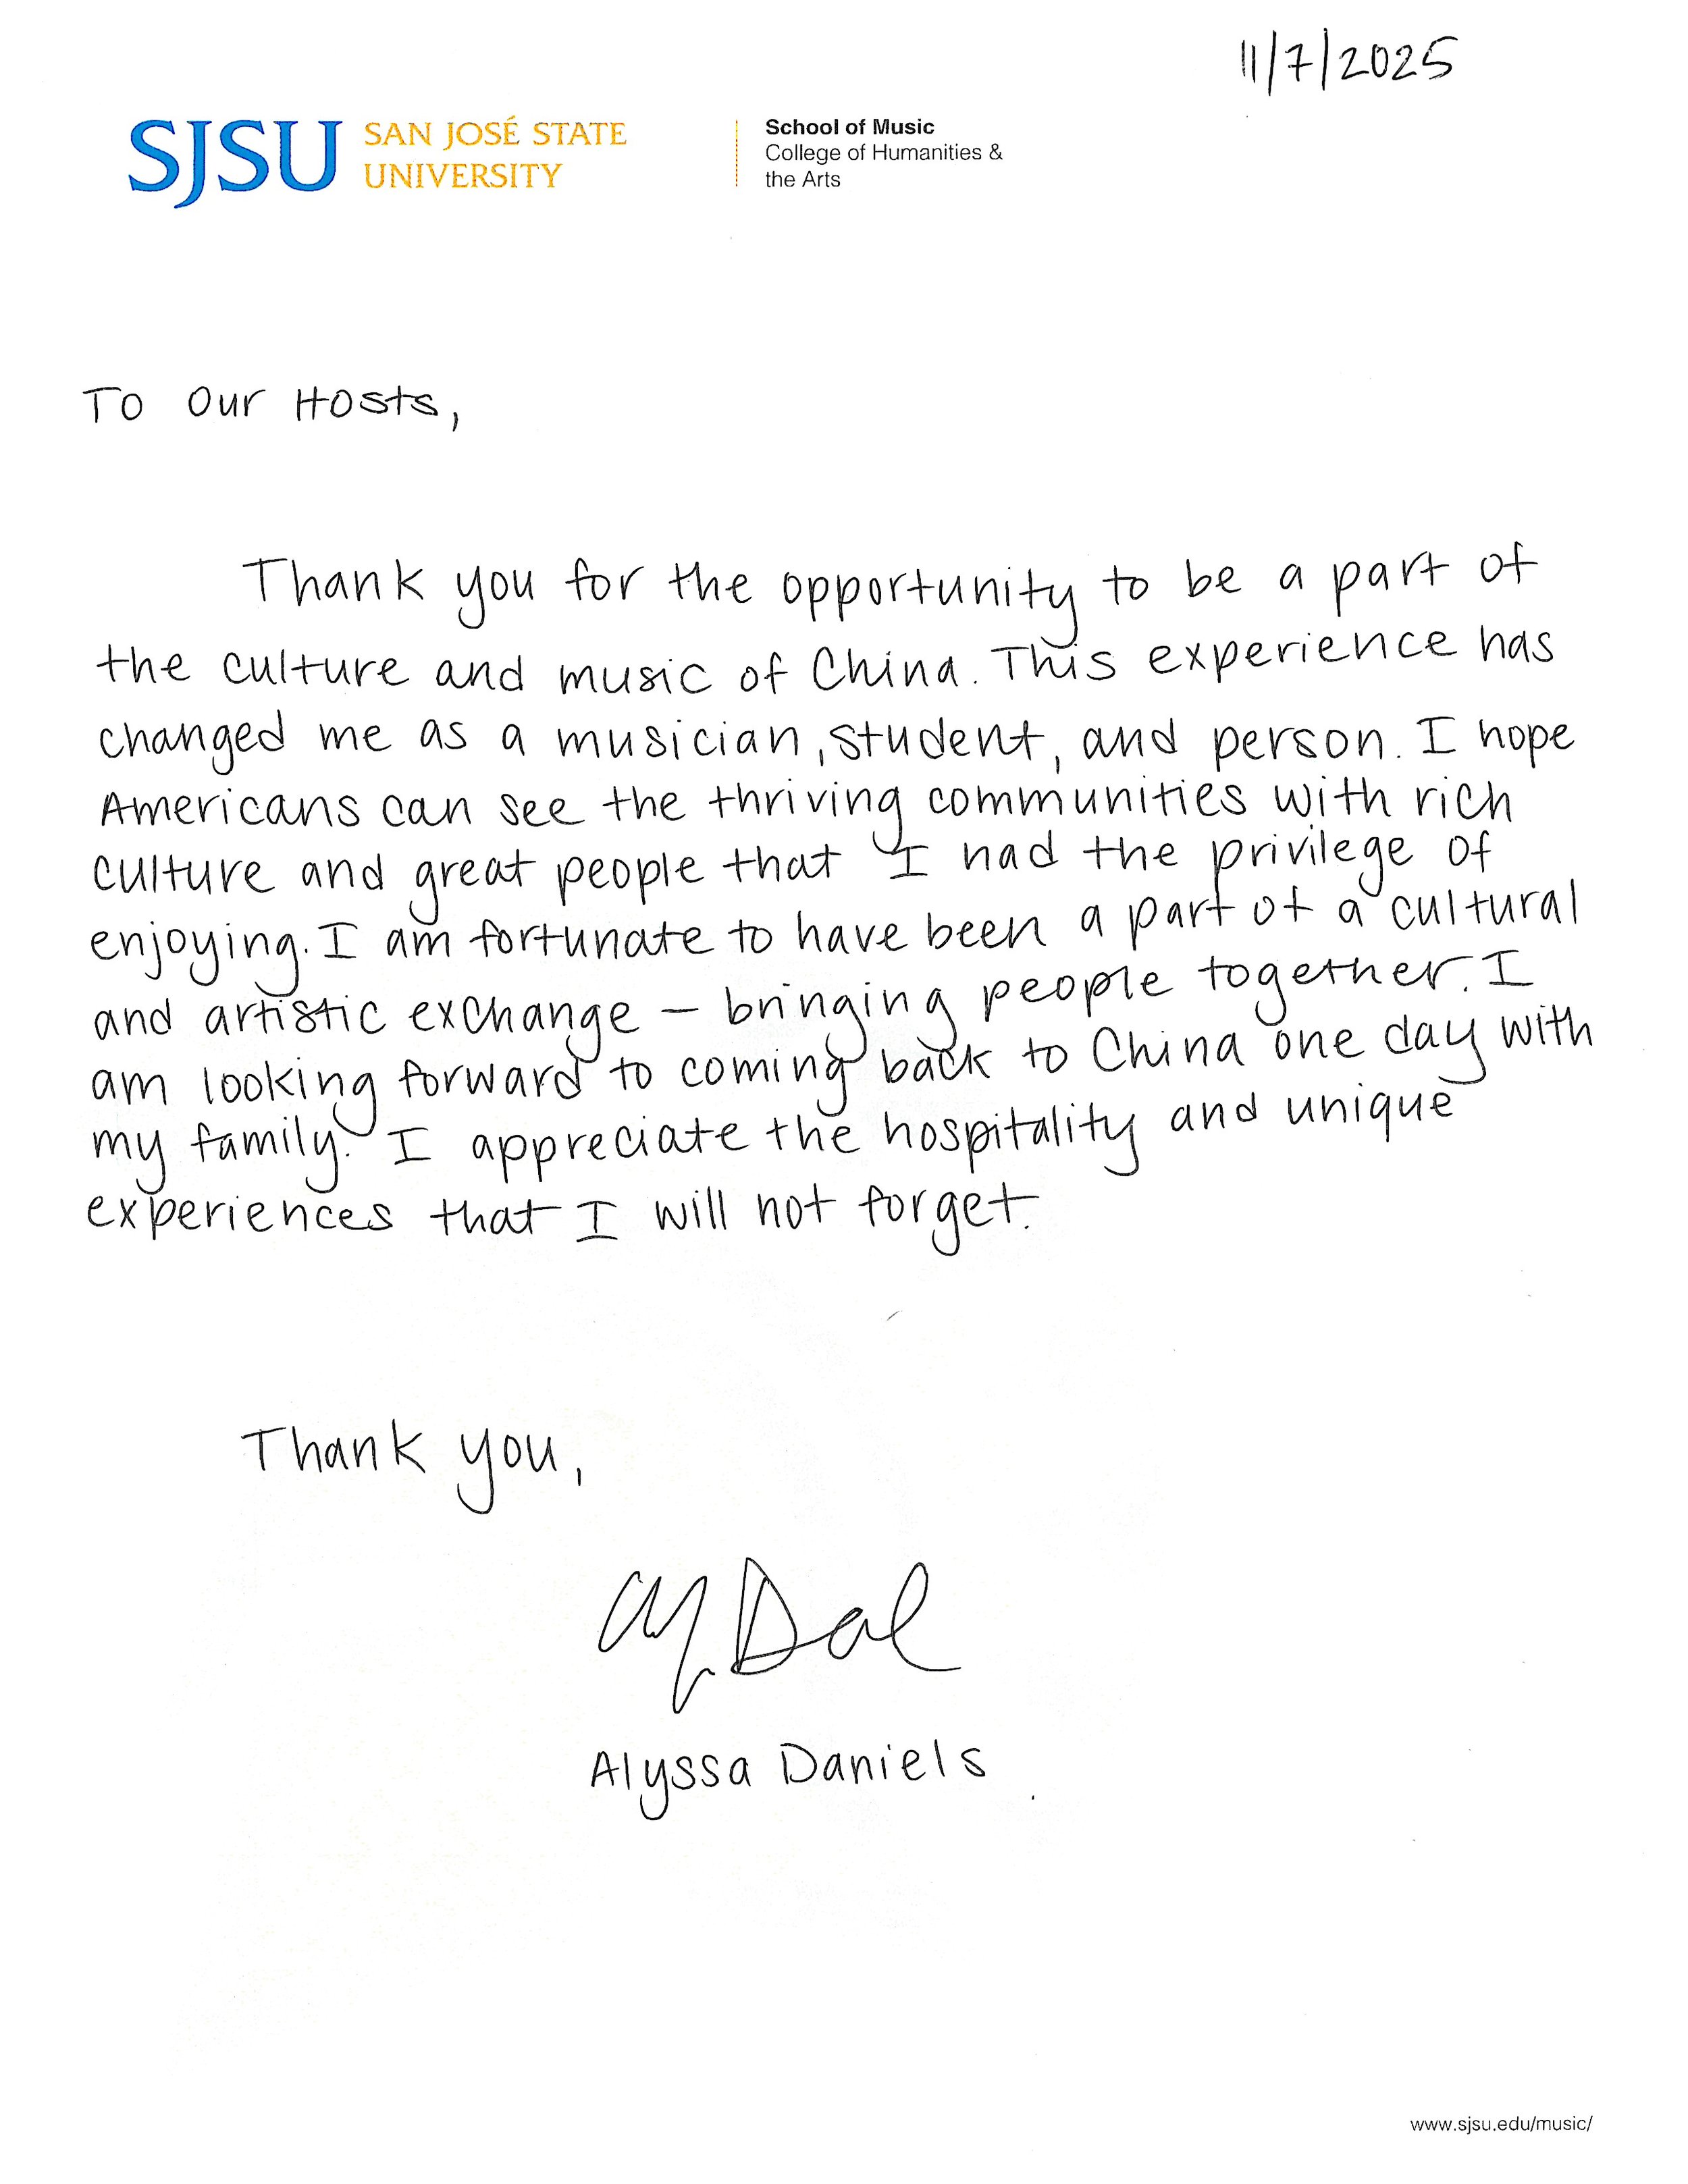 11/7/2025
SJSU SAN JOSÉ STATE
UNIVERSITY
School of Music
College of Humanities &
the Arts
To Our Hosts,
Thank you for the opportunity to be a part of
the culture and music of China. This experience has
changed me as a musician, student, and person. I hope
Americans can see the thriving communities with rich
culture and great people that I had the privilege of
enjoying. I am fortunate to have been a part of a cultural
and artistic exchange – bringing people together. I
am looking forward to coming back to China one day with
my family. I appreciate the hospitality and unique
experiences that I will not forget.
Thank you,
Alyssa Daniels
www.sjsu.edu/music/